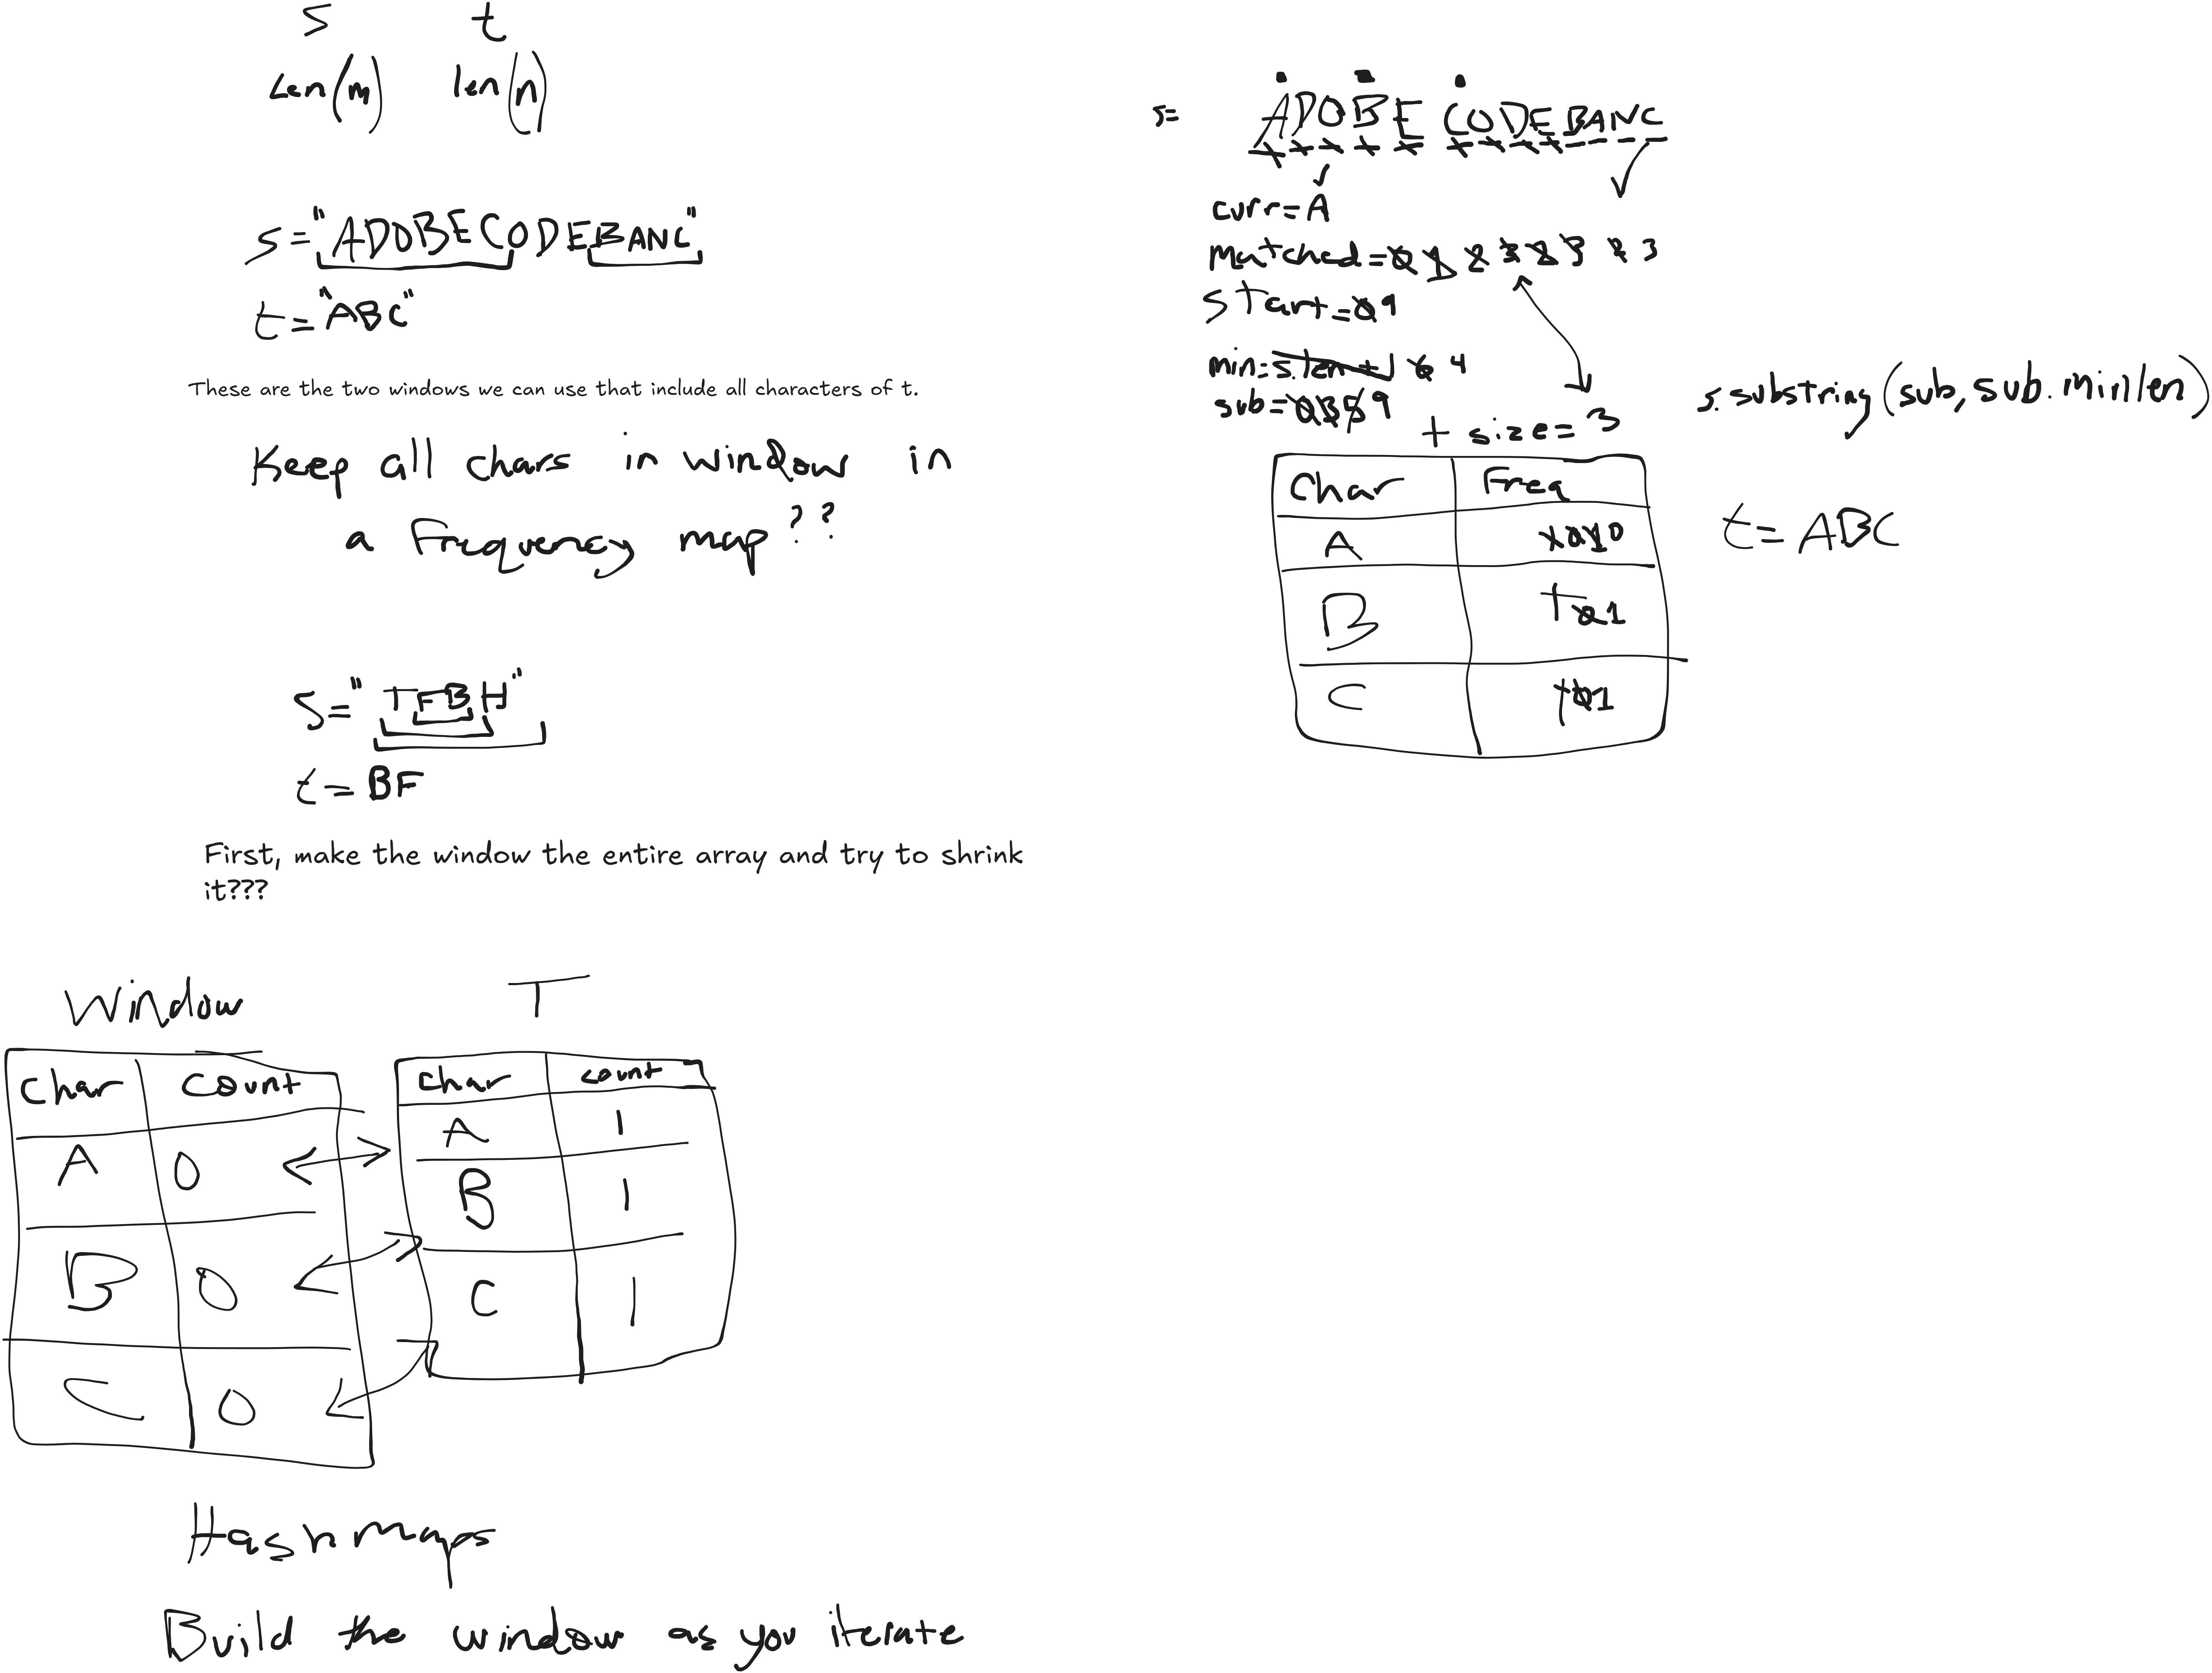 s t
Len(m) len(n)
s="ADOBECODEBANC"
t="ABC"
These are the two windows we can use that include all characters of t.
Keep all chars in window in
a Frequency map??
s="TFBH"
t=BF
First, make the window the entire array and try to shrink
it???
Window T
Char Count
A 0
B 0
C 0
Char count
A 1
B 1
C 1
Hashmaps
Build the window as you iterate
s= ADOBECODEBANC
curr=A
matched=0 1 2 3 2 3 2 3
start=0 9
min=s.len+1 6 4
sub=0 9
s.substring(sub, sub.minlen)
t size=3
Char Freq
A 1 0 1 0
B 1 0 1
C 1 0 1
t=ABC